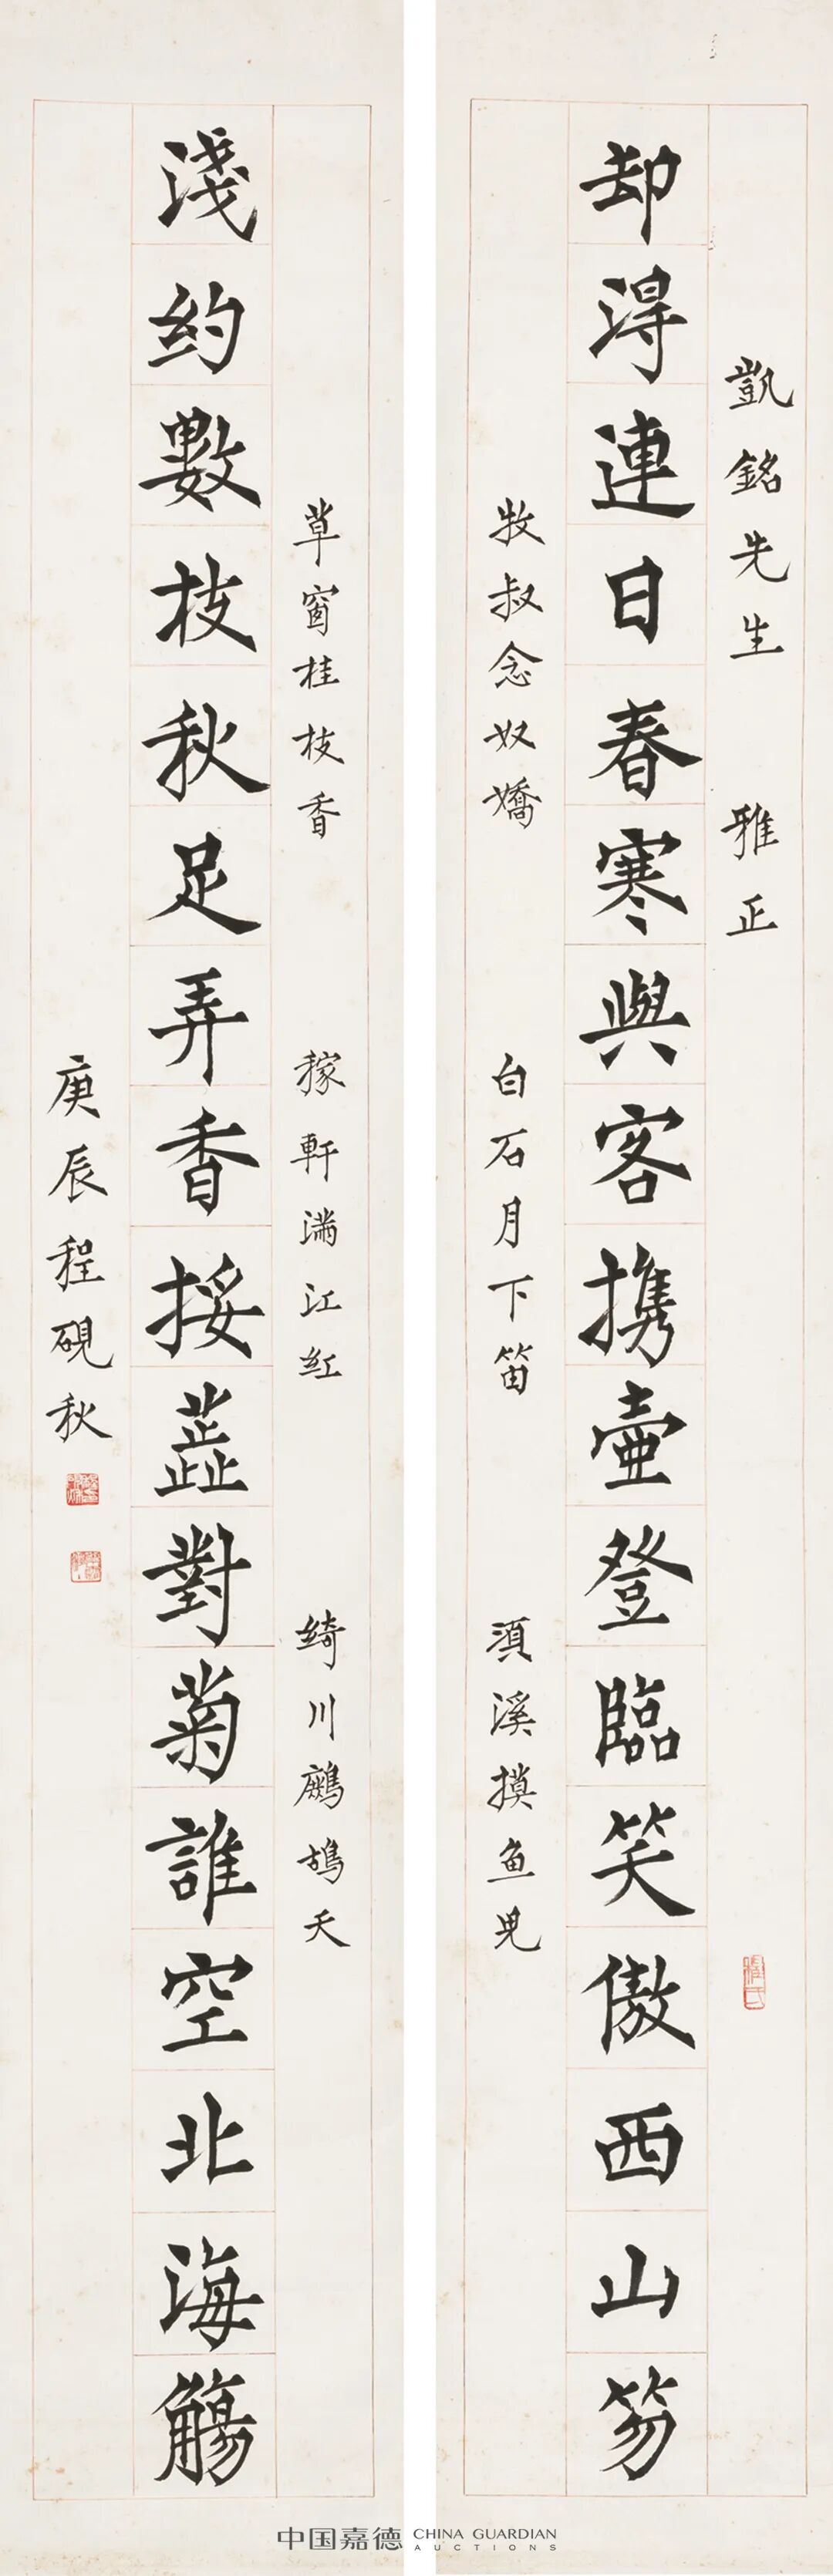 凱銘先生 雅正
却淂連日春寒與客携壷登臨笑傲西山笏
牧叔念奴嬌 白石月下笛 須溪摸鱼児
草窗桂枝香 稼軒滿江红 绮川鷓鴣天
淺约數枝秋足弄香挼蘂對菊誰空北海觴
庚辰程硯秋
中国嘉德 CHINA GUARDIAN
AUCTIONS